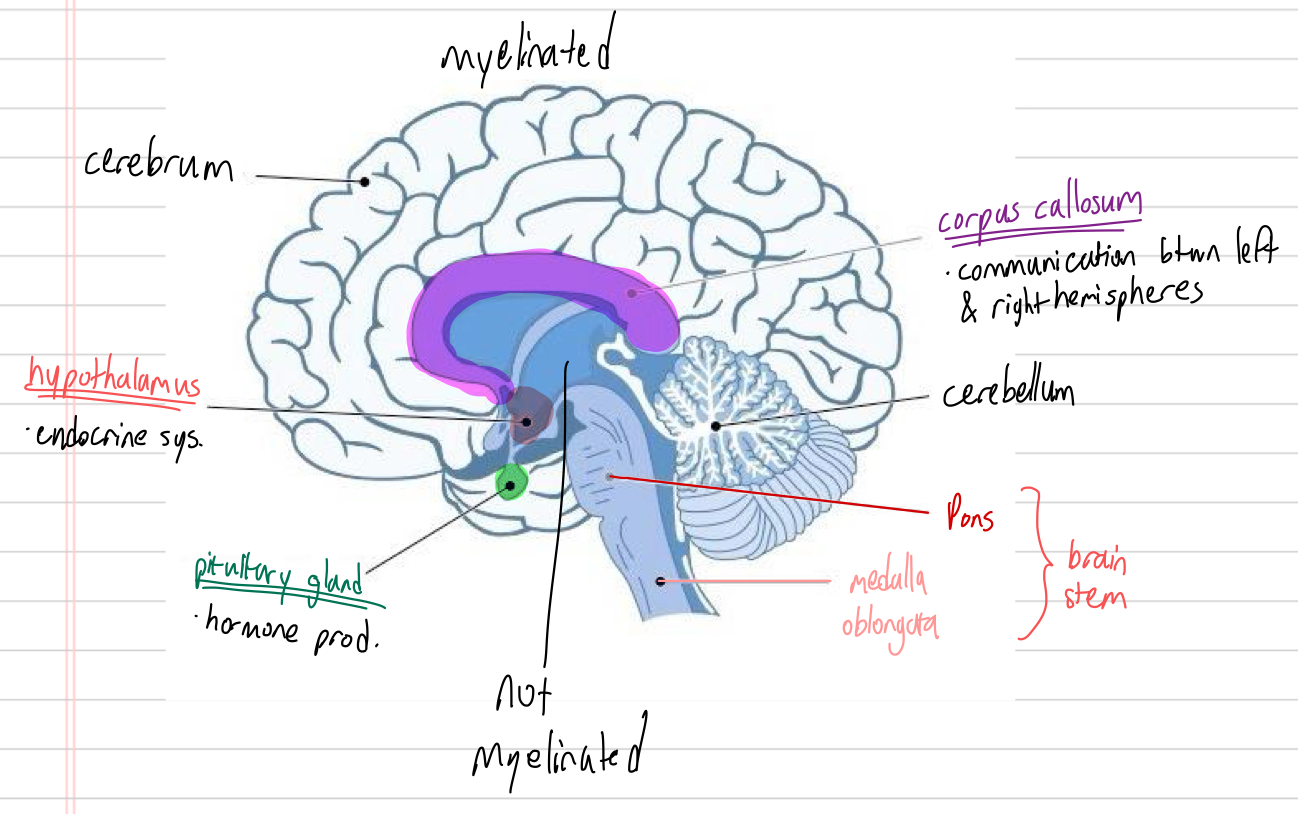 myelinated
cerebrum
corpus callosum
· communication btwn left
& right hemispheres
hypothalamus
· endocrine sys.
cerebellum
Pons
brain
stem
medulla
oblongata
pituitary gland
· hormone prod.
not
myelinated